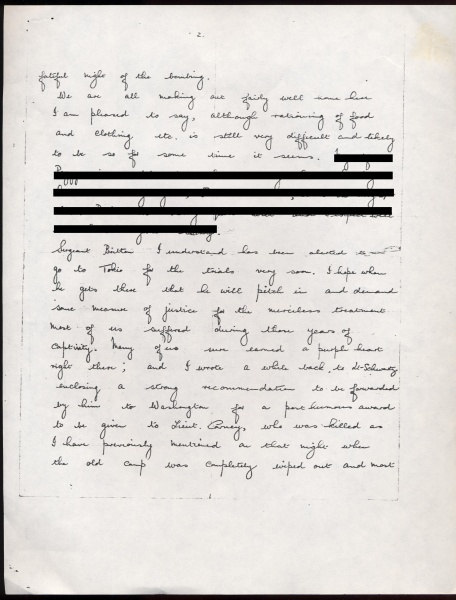 2.
fateful night of the bombing.
We are all making out fairly well here
I am pleased to say, although rationing of food
and clothing etc. is still very difficult and likely
to be so for some time it seems.
Sergeant I understand has been alerted to
go to Tokio for the trials very soon. I hope when
he gets there that he will pitch in and demand
some measure of justice for the merciless treatment
most of us suffered during those years of
captivity. Many of us sure earned a purple heart
right there; and I wrote a while back to
enclosing a strong recommendation to be forwarded
by him to Washington for a posthumous award
to be given to Lieut. Carney, who was killed as
I have previously mentioned on that night when
the old camp was completely wiped out and most